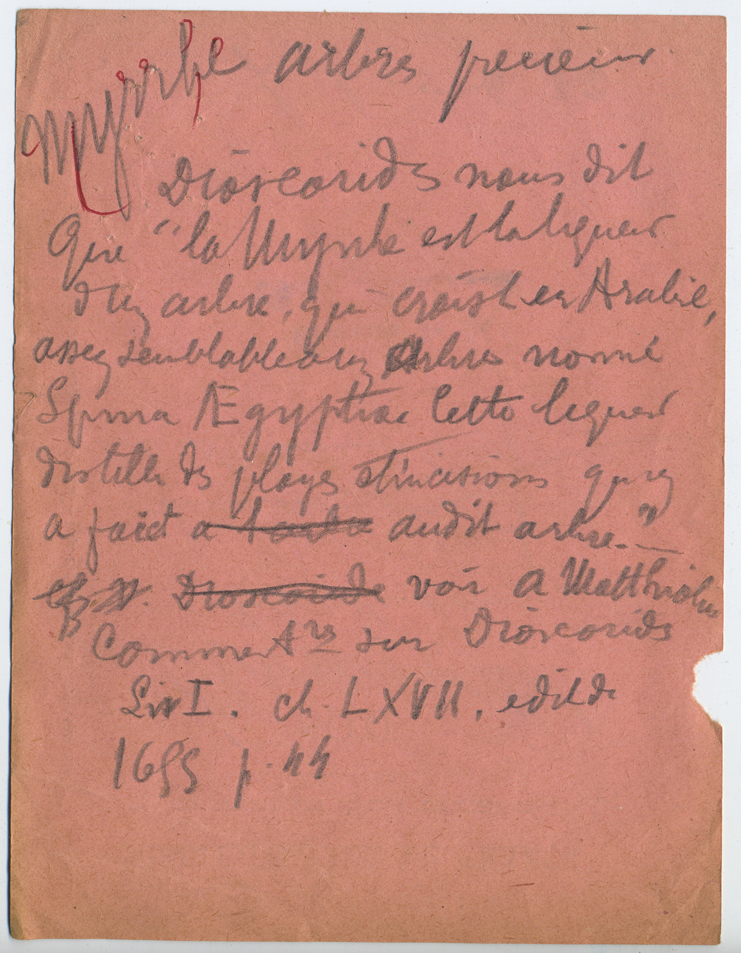 Myrrhe arbres precieux
Dioscorides nous dit
Que "la Myrrhe est la liqueur
d'un arbre, qui croist en Arabie,
assez semblable aux Arbres nommé
Spina Ægyptiae Cette liqueur
distille des playes & incisions qu'on
a faict a audit arbre."
Dioscoride voir A Matthiolus
Comment.res sur Dioscorides
Liv I. ch. LXVII, edit de
1655 p. 44